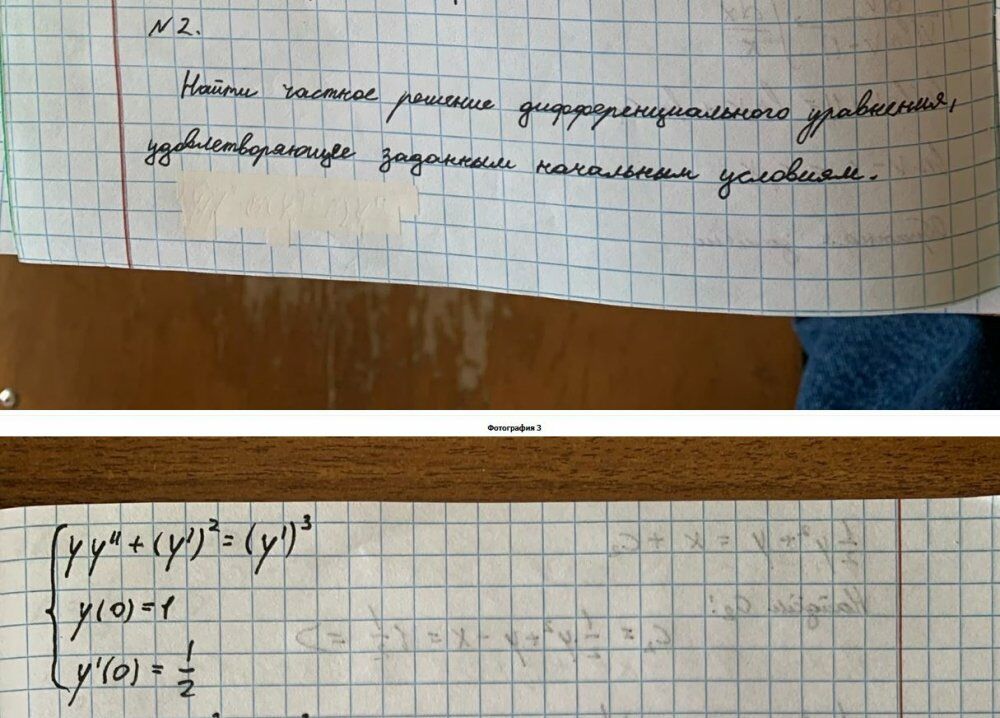 N 2.
Найти частное решение дифференциального уравнения,
удовлетворяющее заданным начальным условиям.
Фотография 3
yy" + (y')² = (y')³
y(0) = 1
y'(0) = 1/2